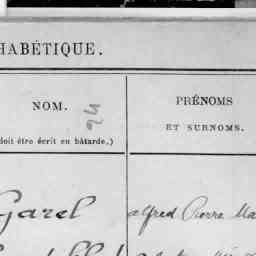 HABÉTIQUE.
NOM.
24
PRÉNOMS
ET SURNOMS.
doit être écrit en bâtarde.)
Garel
alfred Pierre Ma